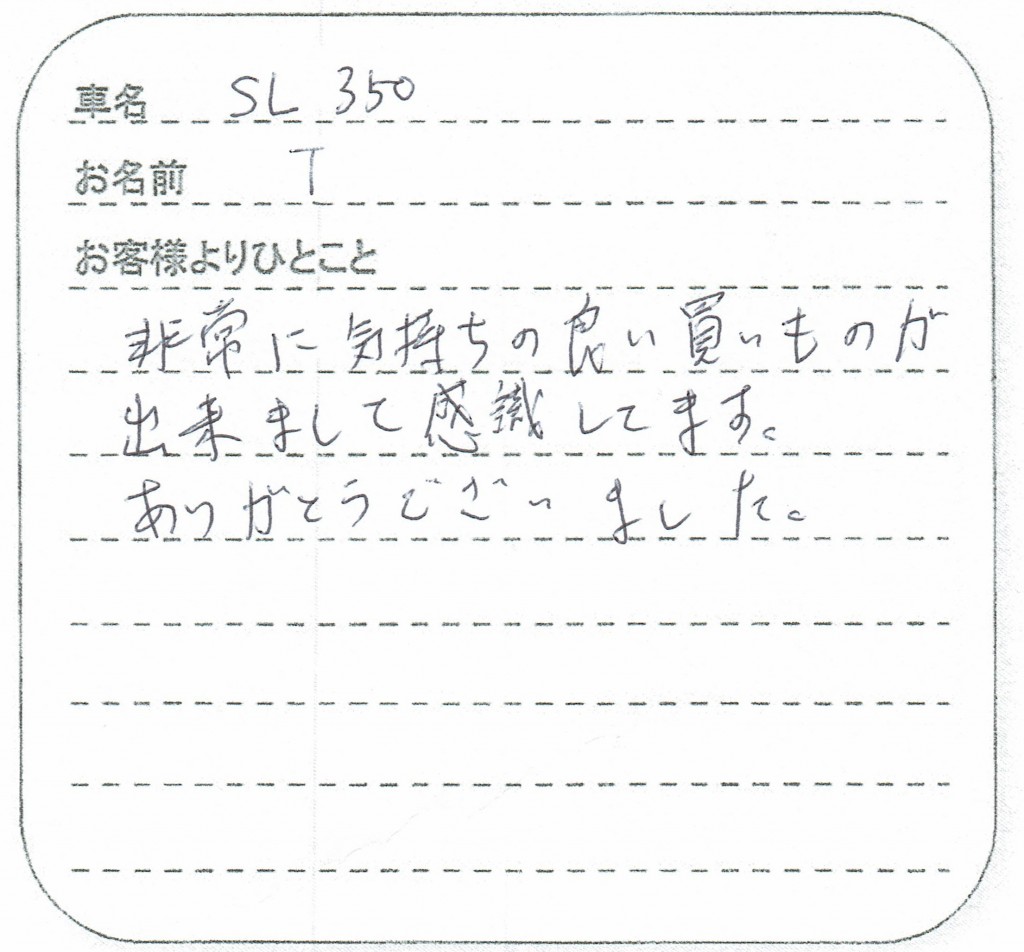 車名 SL 350
お名前 T
お客様よりひとこと
非常に気持ちの良い買いものが
出来まして感識してます。
ありがとうございました。